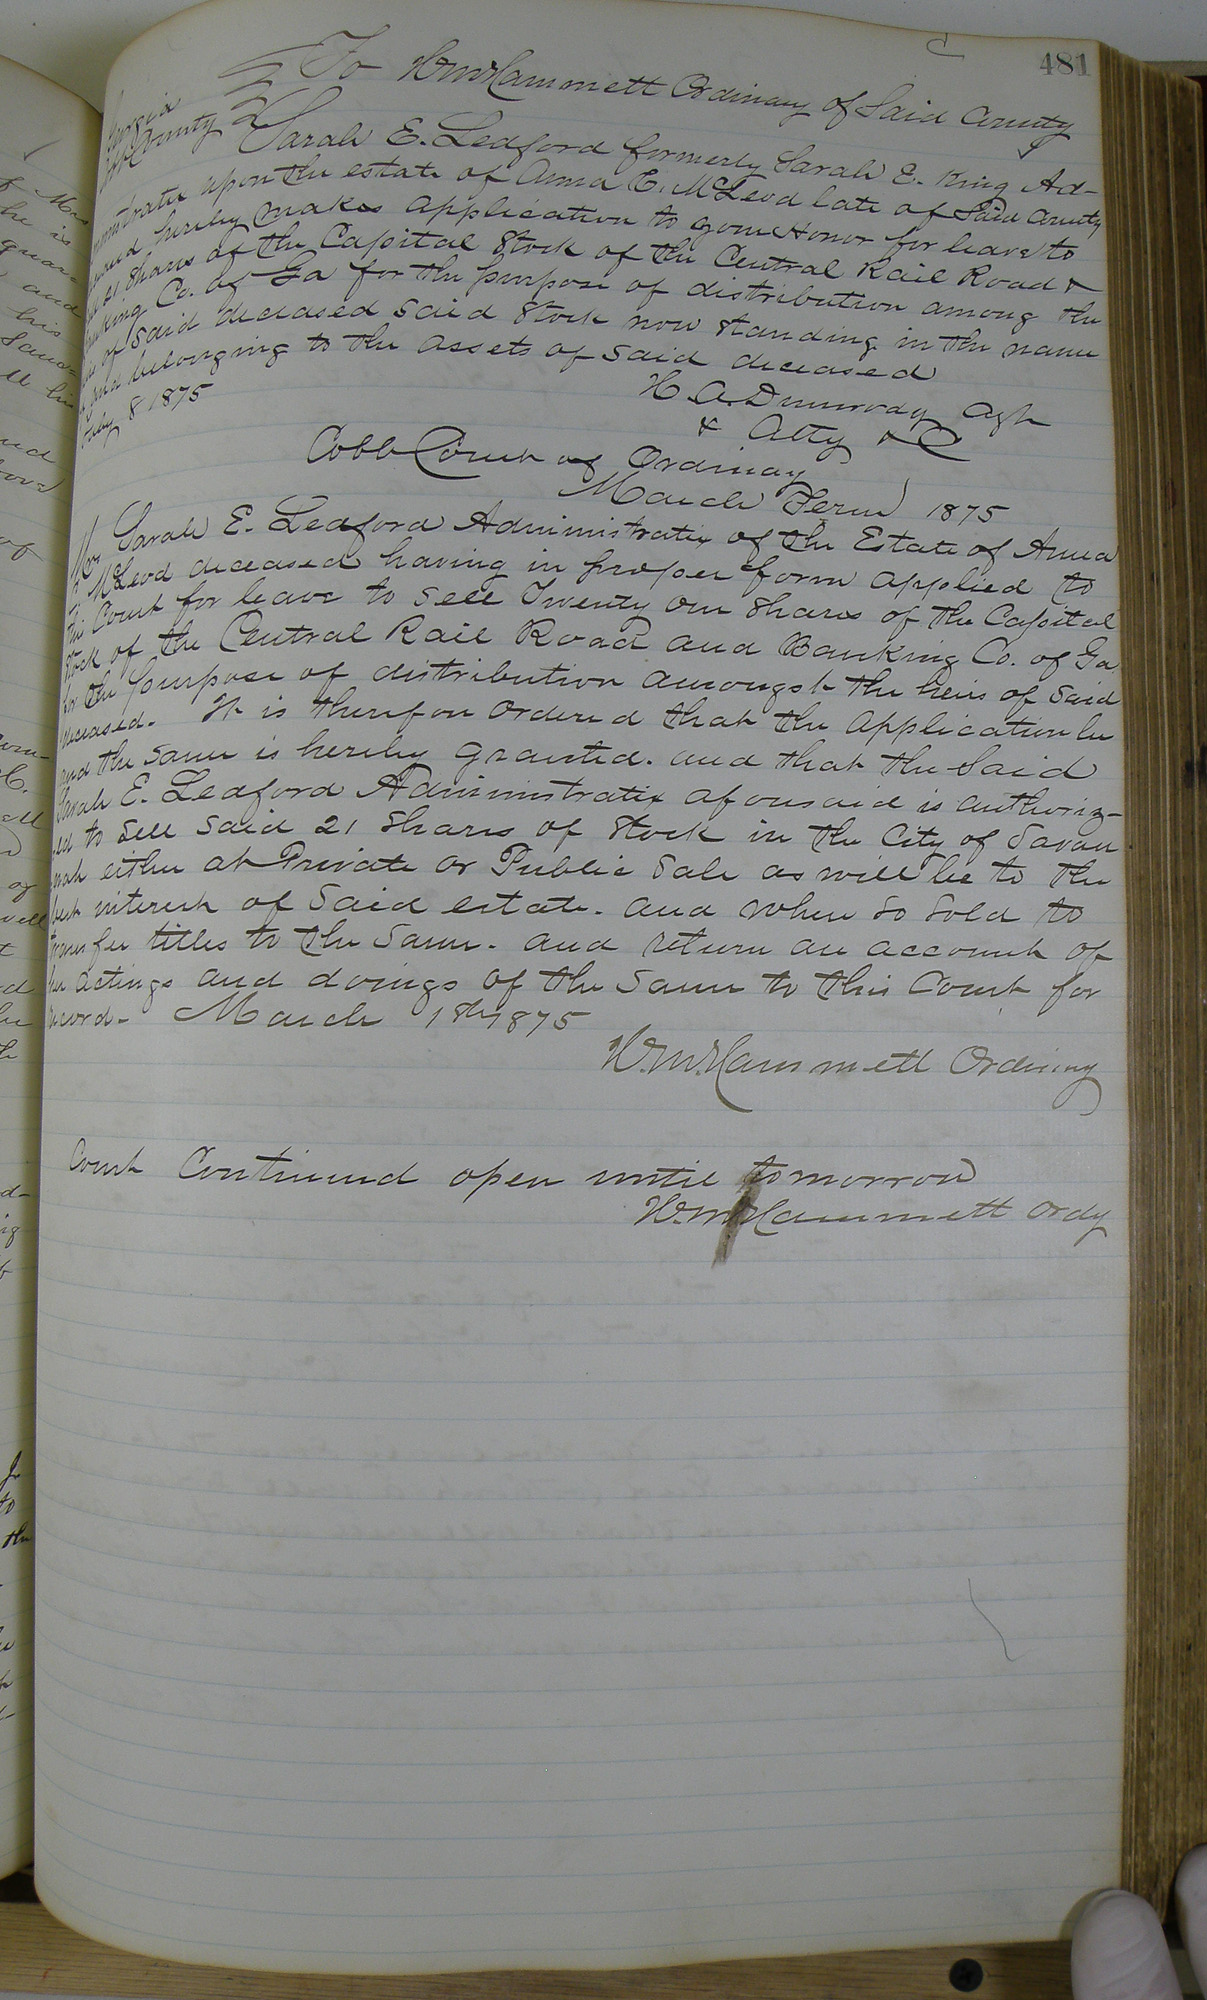 481
To Wm W Hammett Ordinary of Said County
Georgia
Cobb County
Sarah E. Leaford formerly Sarah E. King Ad-
ministratrix upon the estate of Anna C. McLeod late of Said County
deceased hereby makes application to your Honor for leave to
sell 21 Shares of the Capital Stock of the Central Rail Road &
Banking Co. of Ga for the purpose of distribution among the
heirs of Said deceased Said Stock now Standing in the name
of and belonging to the assets of Said deceased
8 1875
H. A. Dunwody Agt
& Atty &C
Cobb Court of Ordinary
March Term 1875
Mrs Sarah E. Leaford Administratrix of the Estate of Anna
C. McLeod deceased having in proper form applied to
this Court for leave to Sell Twenty one Shares of the Capital
Stock of the Central Rail Road and Banking Co. of Ga
for the purpose of distribution amongst the heirs of Said
deceased. It is therefore Ordered that the Application be
and the Same is hereby Granted. and that the Said
Sarah E. Leaford Administratrix aforesaid is authoriz-
ed to Sell Said 21 Shares of Stock in the City of Savan
nah either at Private or Public Sale as will be to the
best interest of Said estate. and when So Sold to
transfer titles to the Same. and return an account of
her actings and doings of the Same to this Court for
record. March 1st 1875
Wm W Hammett Ordinary
Court Continued open until tomorrow
Wm W Hammett Ordy